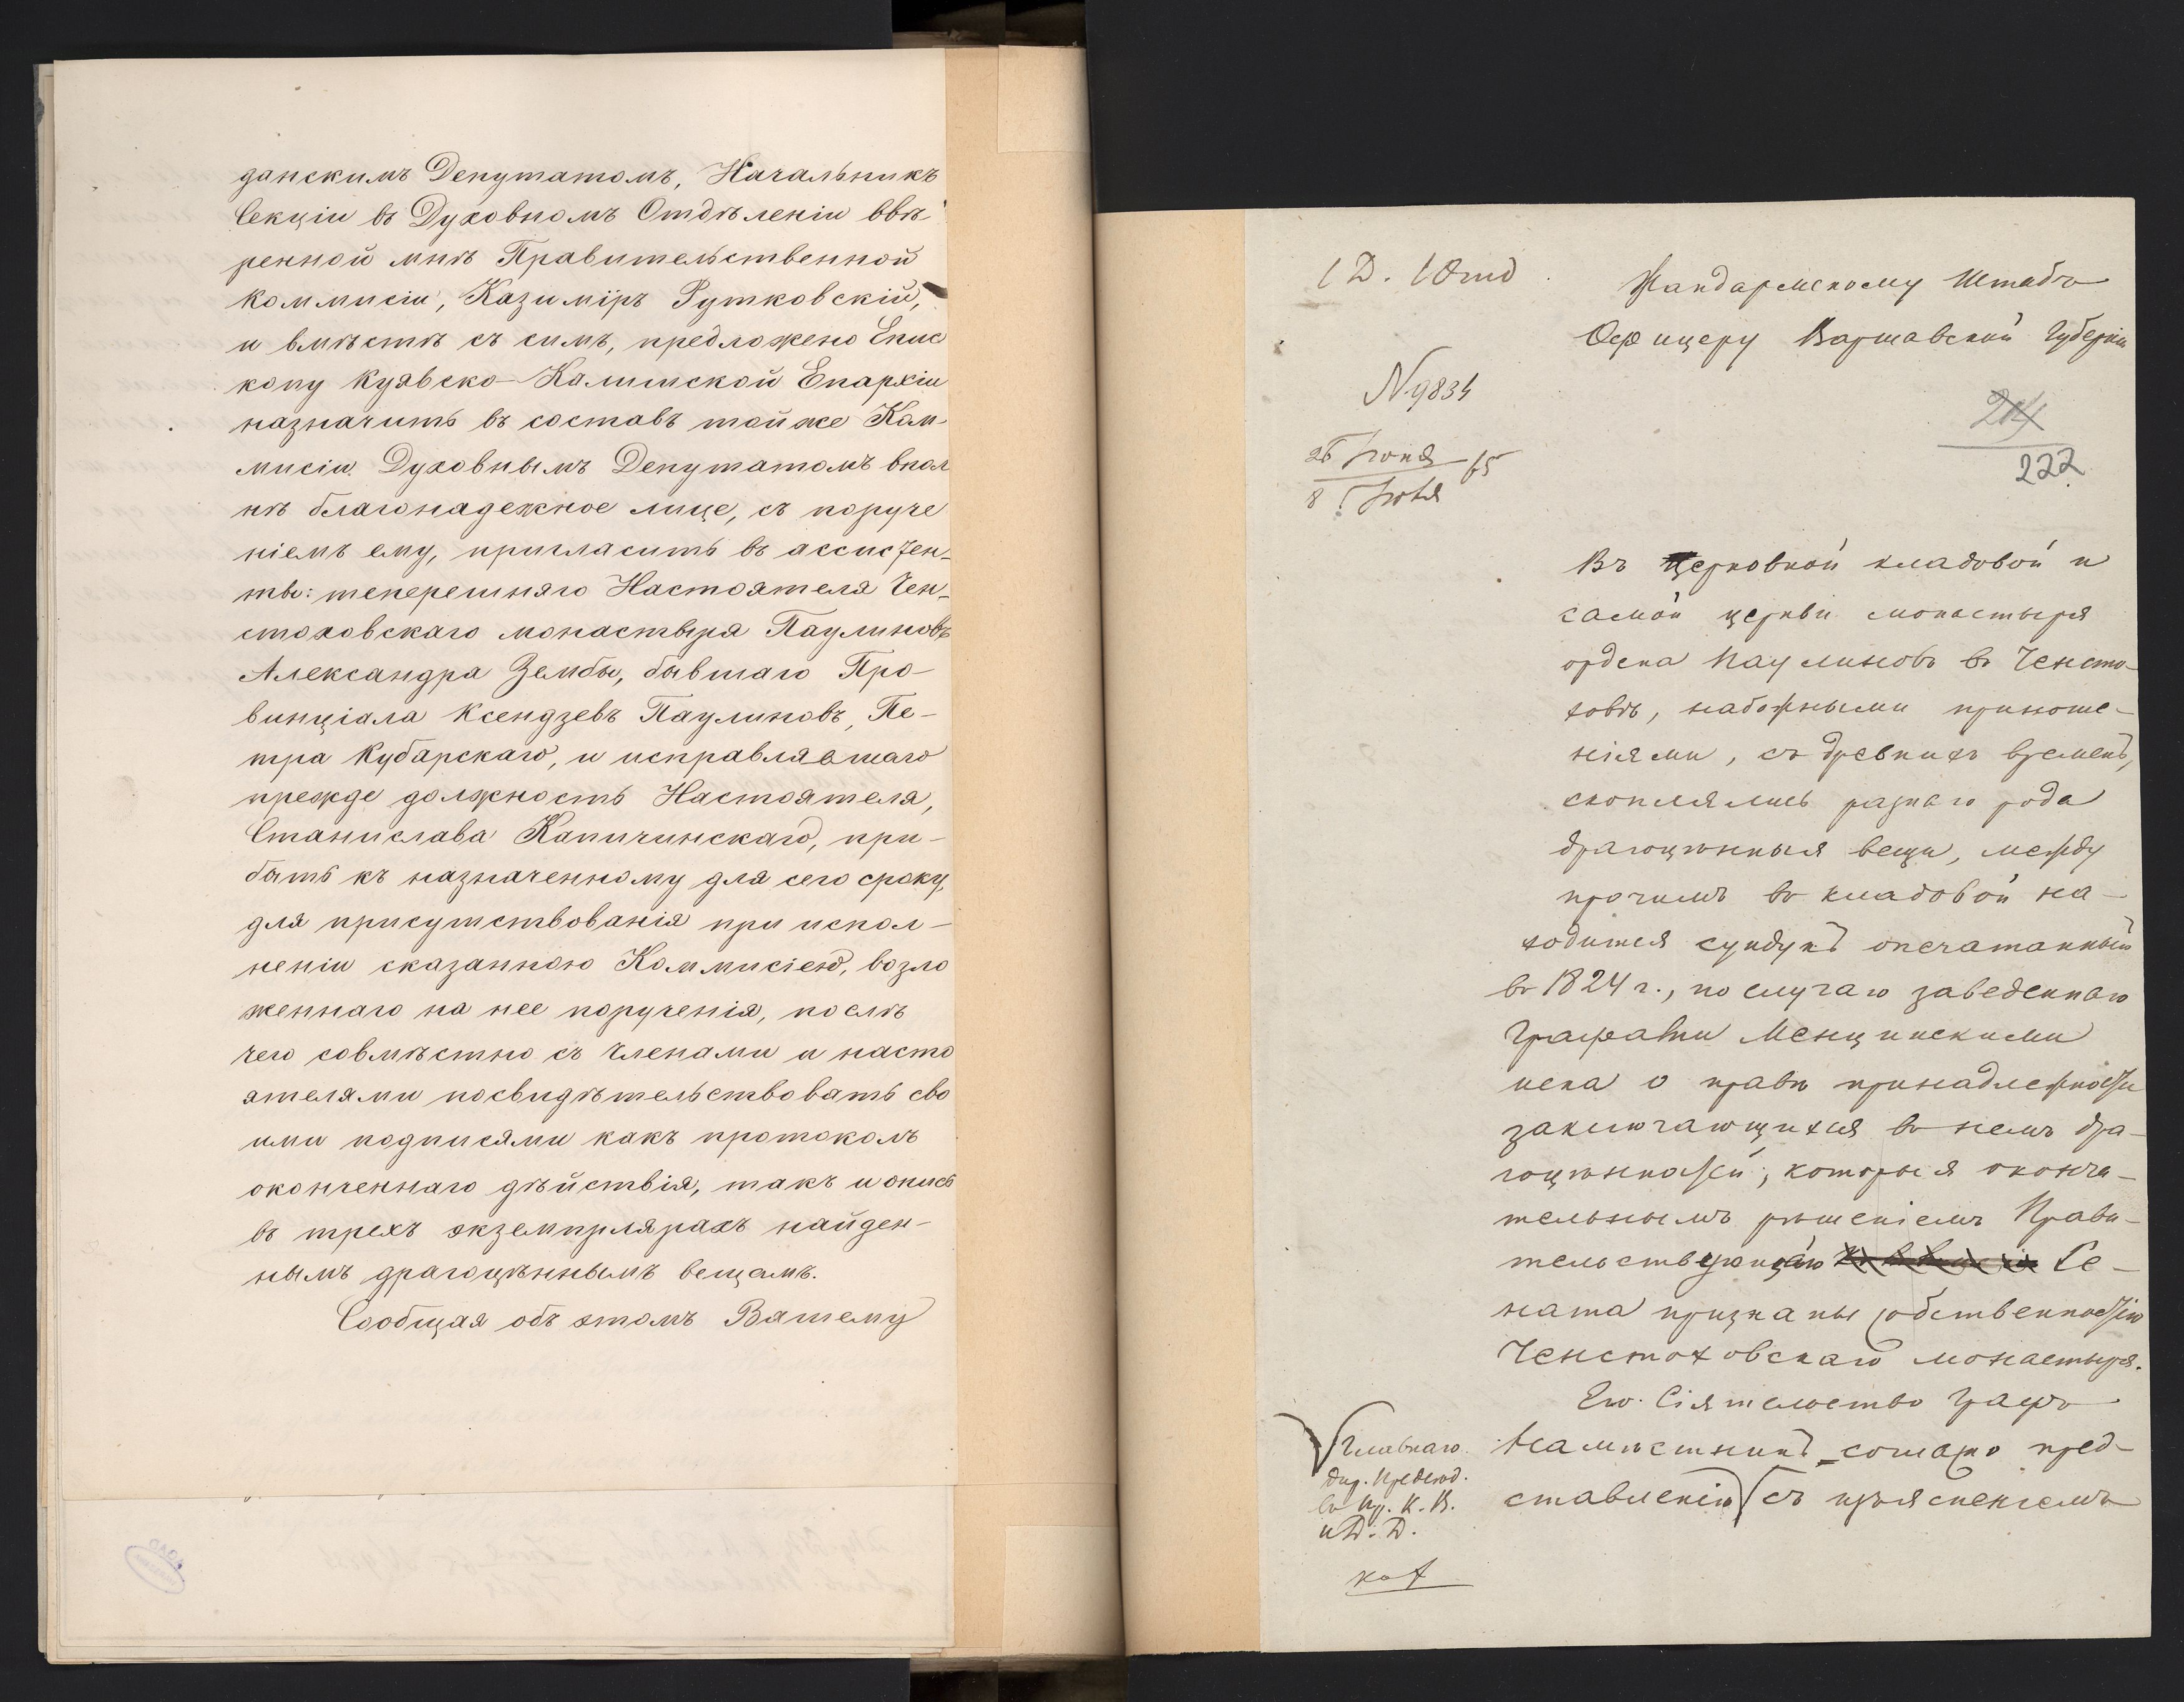 данскимъ Депутатомъ, Начальникъ
Секціи въ Духовномъ Отдѣленіи ввѣ-
ренной мнѣ Правительственной
Коммисіи, Казиміръ Рутковскій,
и вмѣстѣ съ симъ, предложено Епис
копу Куявско-Калишской Епархіи
назначить въ составъ тойже Ком-
мисіи Духовнымъ Депутатомъ впол
нѣ благонадежное лице, съ поруче
ніемъ ему, пригласить въ ассистен-
ты: теперешняго Настоятеля Чен-
стоховскаго монастыря Паулиновъ
Александра Зембы, бывшаго Про-
винціала Ксендзевъ Паулиновъ, Пе-
тра Кубарскаго, и исправлявшаго
прежде должность Настоятеля,
Станислава Капичинскаго, при-
быть къ назначенному для сего сроку,
для присутствованія при испол-
неніи сказанною Коммисіею, возло
женнаго на нее порученія, послѣ
чего совмѣстно съ членами и насто
ятелями посвидѣтельствовать сво
ими подписями какъ протоколъ
оконченнаго дѣйствія, такъ и опись
въ трехъ экземплярахъ найден-
нымъ драгоцѣннымъ вещамъ.
Сообщая объ этомъ Вашему
1 Д. 1 Отд
Жандармскому Штабъ
Офицеру Варшавской Губерніи
N 9834
214
222
26 Іюня / 8 Іюля 65
Въ церковной кладовой и
самой церкви монастыря
ордена Паулиновъ въ Ченсто-
ховѣ, набожными приноше-
ніями, съ древнихъ временъ,
скоплялись разнаго рода
драгоцѣнныя вещи, между
прочимъ въ кладовой на-
ходится сундукъ опечатанный
въ 1824 г., по случаю заведеннаго
Графами Менцинскими
иска о правѣ принадлежности
заключающихся въ немъ дра-
гоцѣнностей, которыя оконча-
тельнымъ рѣшеніемъ Прави-
тельствующаго Се-
ната признаны собственностію
Ченстоховскаго монастыря.
Его Сіятельство Графъ
Намѣстникъ согласно пред-
ставленію съ изъясненіемъ
Главнаго
Дир. Предсѣд.
въ Пр. К. В.
и Д. Д.